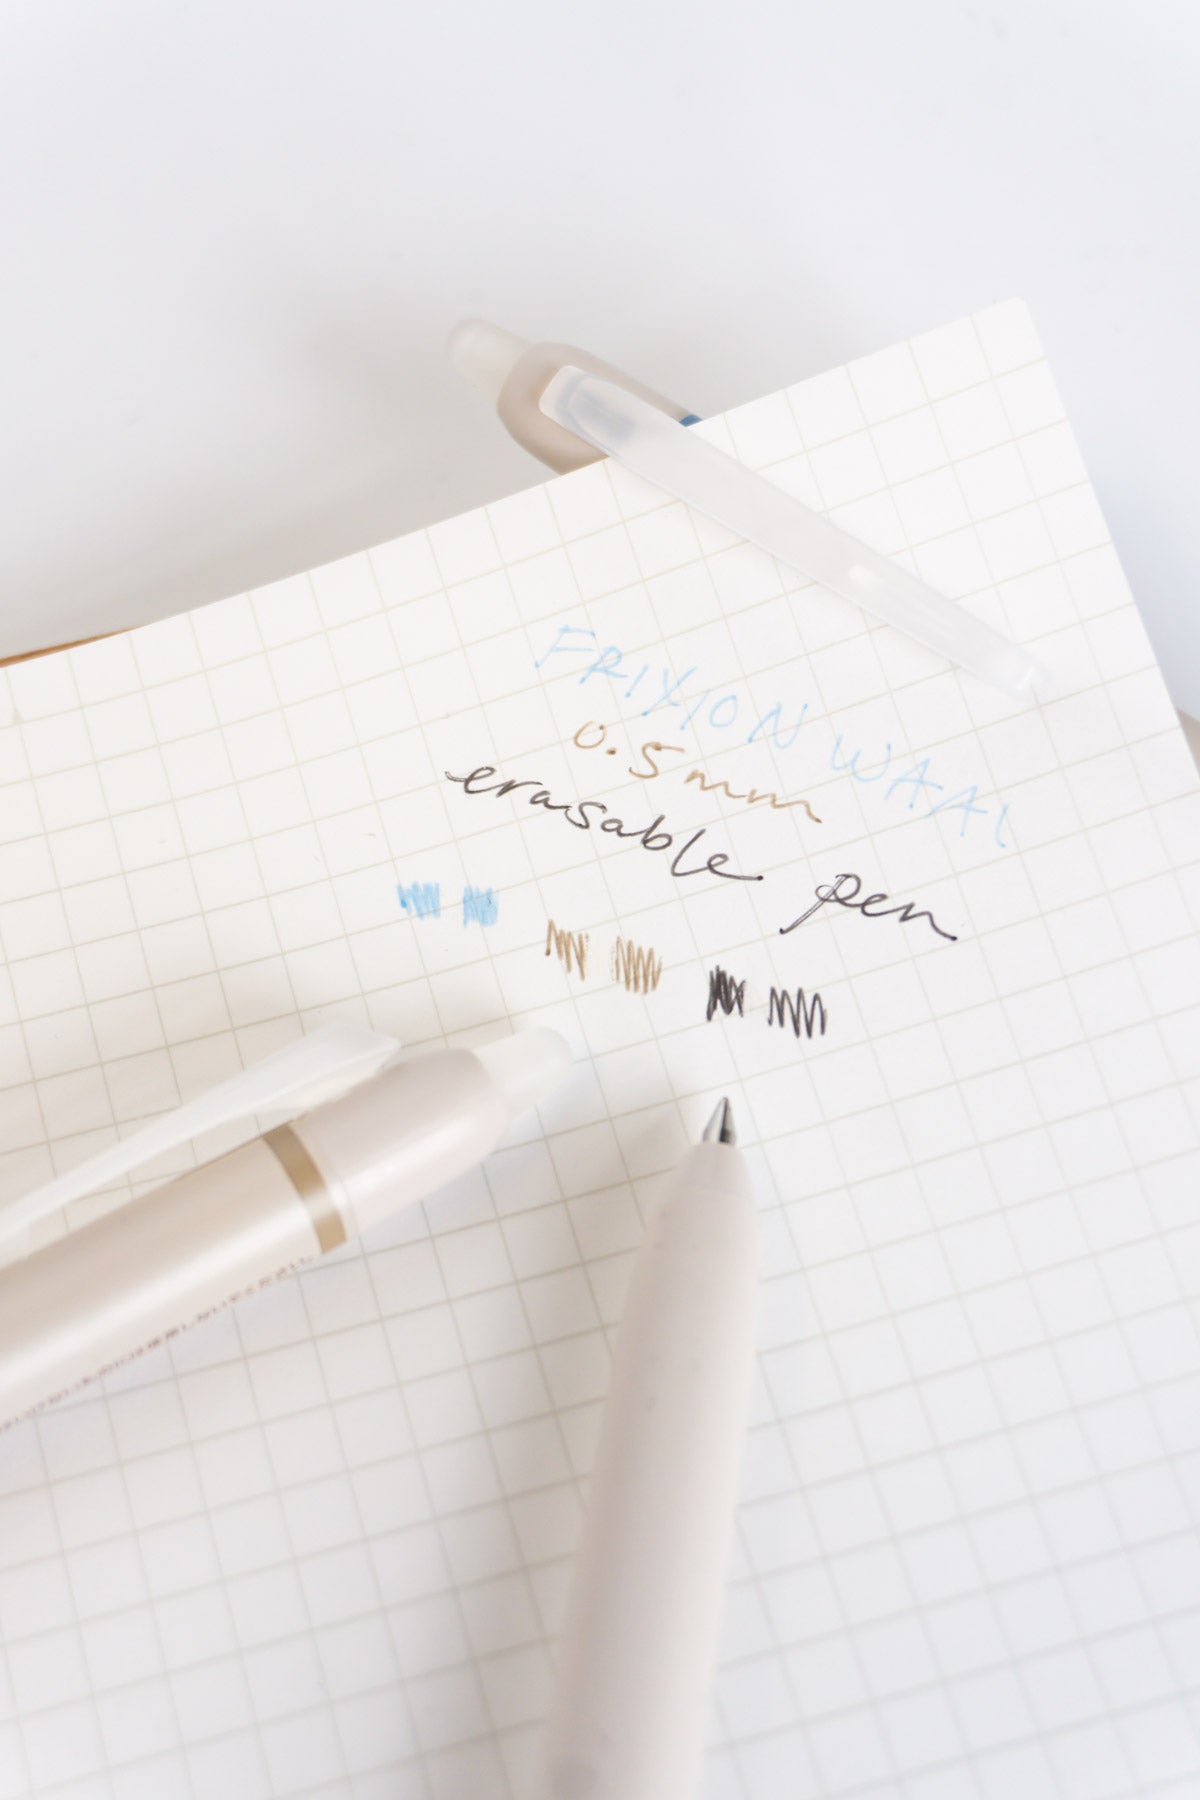 FRIXION WAAI
0.5mm
erasable pen